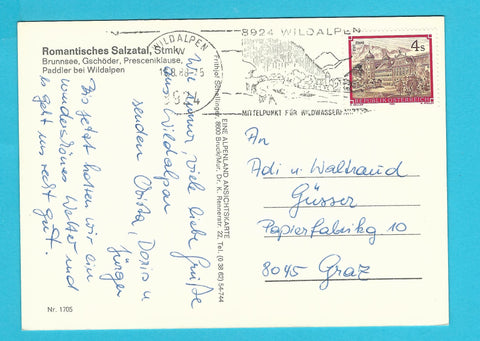 Romantisches Salzatal, Stmk
Brunnsee, Gschöder, Presceniklause,
Paddler bei Wildalpen
WILDALPEN
8924 WILDALPEN
MITTELPUNKT FÜR WILDWASSERFAHRTEN
4 S
REPUBLIK ÖSTERREICH
Wie immer, viele liebe Grüße
aus Wildalpen
senden Christa, Doris u
Jürgen
Bis jetzt hatten wir ein
wunderschönes Wetter und
es geht uns recht gut.
EINE ALPENLAND ANSICHTSKARTE
8600 Bruck/Mur, Dr. K. Rennerstr. 22, Tel. (0 38 62) 54-7 44
An
Adi u. Waltraud
Güsser
Papierfabrikg 10
8045 Graz
Nr. 1705